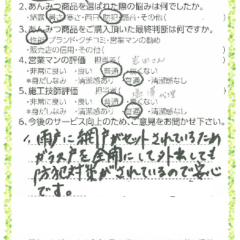 2.あんみつ商品を選ばれた際の悩みは何でしたか。
3.あんみつ商品をご購入頂いた最終判断は何ですか。
・性能・ブランド・クチコミ・営業マンの勧め
・販売店の信用・その他(
4.営業マンの評価 担当者(
・非常に良い・良い・普通・良くない
*身だしなみ・清潔感あり・普通・清潔感なし
5.施工技師評価 担当者(
・非常に良い・良い・普通・良くない
*身だしなみ・清潔感あり・普通・清潔感なし
6.今後のサービス向上のため、ご意見をお聞かせ下さい。
雨戸に網戸がセットされているため
ガラス戸を全開にして外出しても
防犯対策がされているので安心
です。